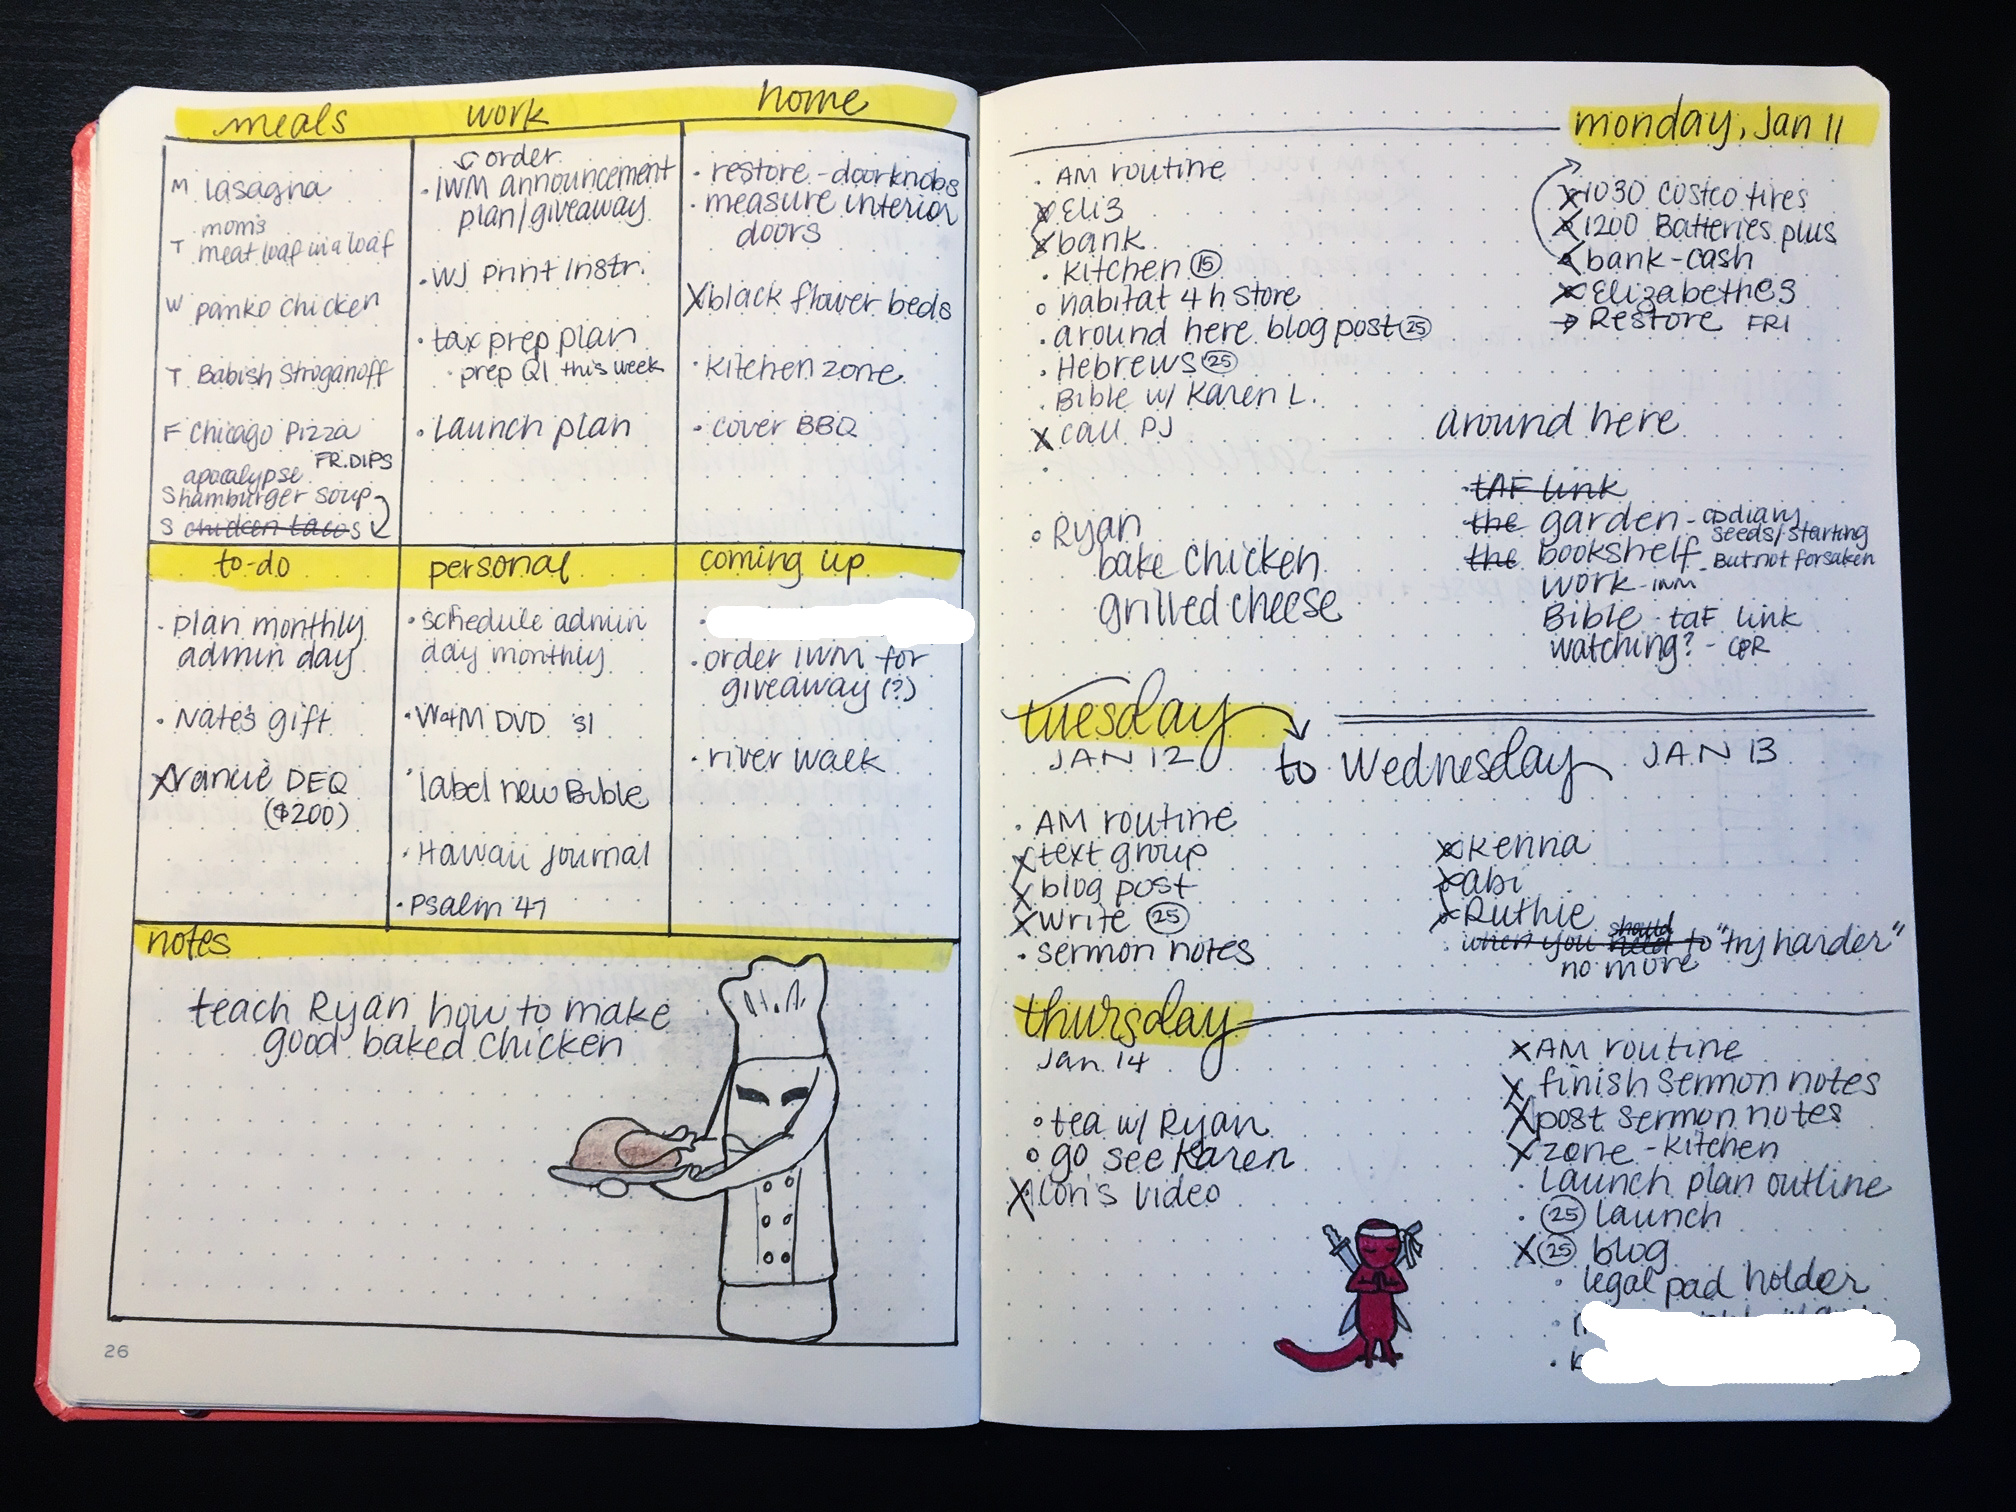 meals
M lasagna
mom's
T meat loaf in a loaf
W panko chicken
T Babish Stroganoff
F Chicago Pizza
FR. DIPS
apocalypse
S hamburger soup
S chicken tacos
work
order
· IWM announcement
plan/giveaway
· WJ Print Instr.
· tax prep plan
· prep Q1 this week
· Launch plan
home
· restore - doorknobs
· measure interior
doors
X black flower beds
· kitchen zone
· cover BBQ
to-do
· plan monthly
admin day
· Nate's gift
X DEQ
($200)
personal
· schedule admin
day monthly
· W+M DVD S1
· label new Bible
· Hawaii journal
· Psalm 47
coming up
· order IWM for
giveaway (?)
· river walk
notes
teach Ryan how to make
good baked chicken
26
monday, Jan 11
· AM routine
X Eliz
X bank
· Kitchen 15
○ habitat 4 h store
· around here blog post 25
· Hebrews 25
· Bible w/ Karen L.
X call PJ
○ Ryan
bake chicken
grilled cheese
X 1030 Costco tires
X 1200 Batteries plus
X bank - cash
X Elizabethes
→ Restore FRI
around here
· tAF link
the garden - cp diary
seeds/starting
the bookshelf - But not forsaken
work - IWM
Bible - taF link
watching? - CPR
tuesday
JAN 12
to Wednesday JAN 13
· AM routine
X text group
X blog post
X write 25
· sermon notes
X Kenna
X abi
X Ruthie
should
when you need to "try harder"
no more
thursday
Jan. 14
○ tea w/ Ryan
○ go see Karen
X Lori's video
X AM routine
X finish sermon notes
X post sermon notes
X zone - kitchen
· Launch plan outline
· 25 launch
X 25 blog
· legal pad holder